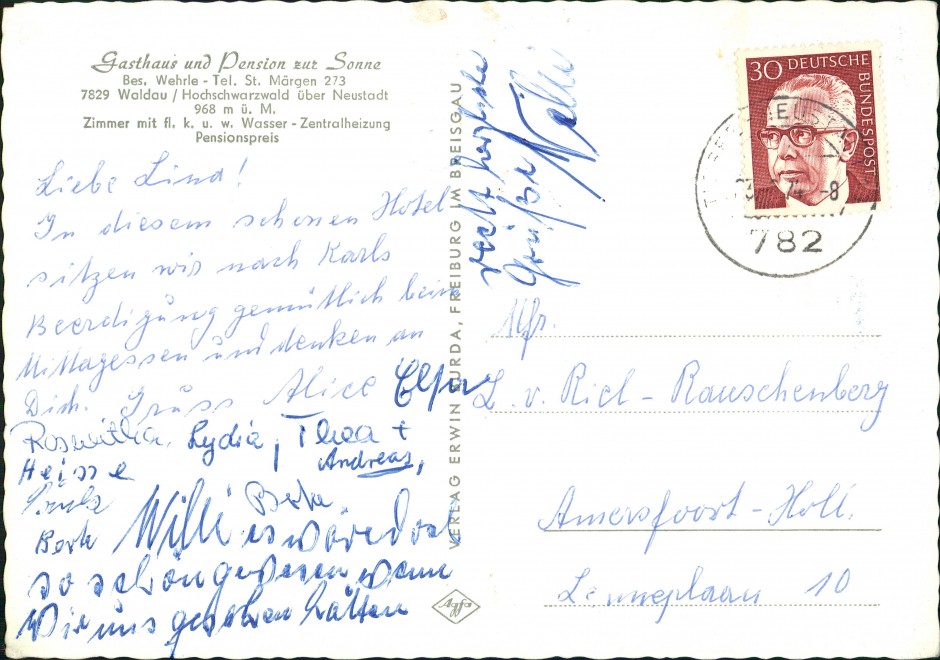 Gasthaus und Pension zur Sonne
Bes. Wehrle - Tel. St. Märgen 273
7829 Waldau / Hochschwarzwald über Neustadt
968 m ü. M.
Zimmer mit fl. k. u. w. Wasser - Zentralheizung
Pensionspreis
Liebe Lina!
In diesem schönen Hotel
sitzen wir nach Karls
Beerdigung gemütlich beim
Mittagessen und denken an
Dich. Gruss Alice
Roswitha, Lydia, Thea +
Andreas,
Heisse
Berta
Willi es wäre doch
so schön gewesen wenn
Wir uns gesehen hätten
recht herzliche
Grüße
VERLAG ERWIN BURDA, FREIBURG IM BREISGAU
Agfa
30 DEUTSCHE
BUNDESPOST
74 -8
782
L. v. Riel - Rauschenberg
Amersfoort - Holl.
10